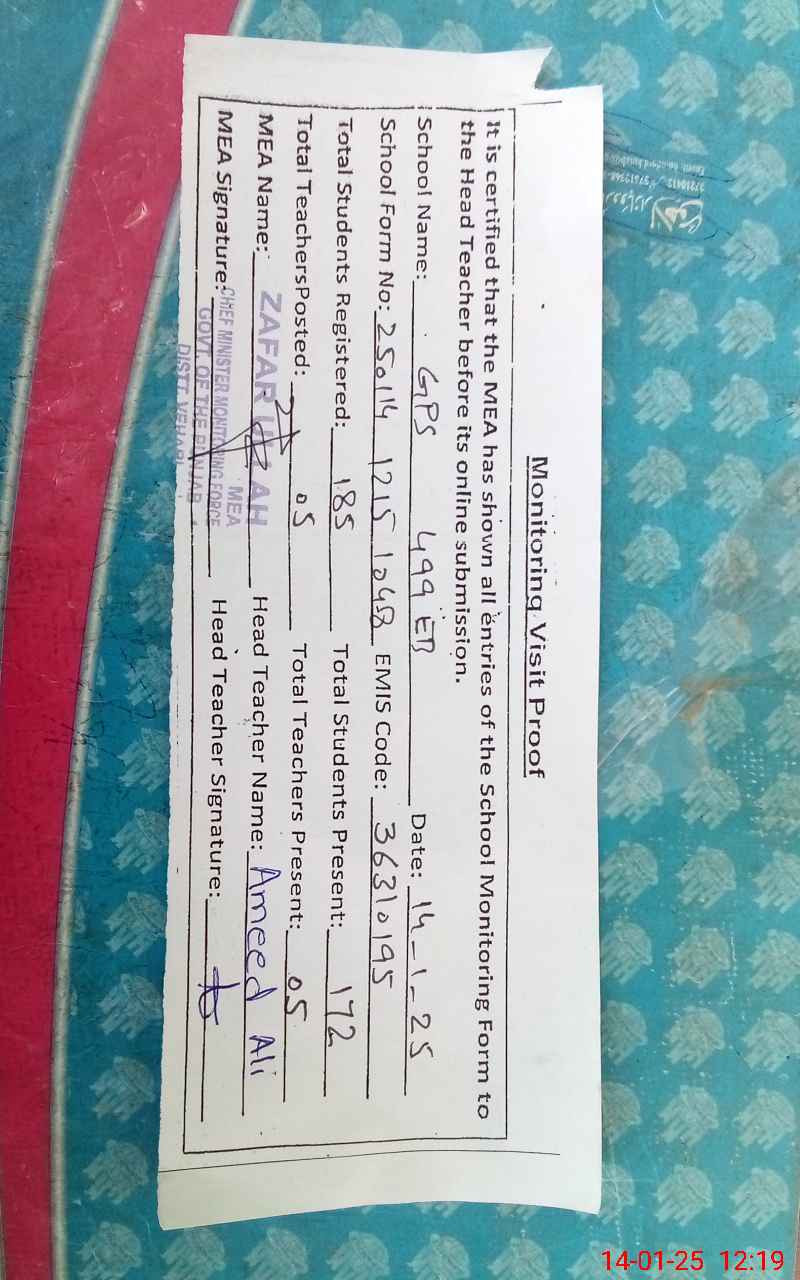 Monitoring Visit Proof
It is certified that the MEA has shown all entries of the School Monitoring Form to
the Head Teacher before its online submission.
School Name: GPS 499 EB Date: 14-1-25
School Form No: 250114 1215 1048 EMIS Code: 36310195
Total Students Registered: 185 Total Students Present: 172
Total TeachersPosted: 05 Total Teachers Present: 05
MEA Name: ZAFAR ULLAH Head Teacher Name: Ameed Ali
MEA
MEA Signature: Head Teacher Signature:
CHIEF MINISTER MONITORING FORCE
GOVT. OF THE PUNJAB
DISTT. VEHARI
14-01-25 12:19